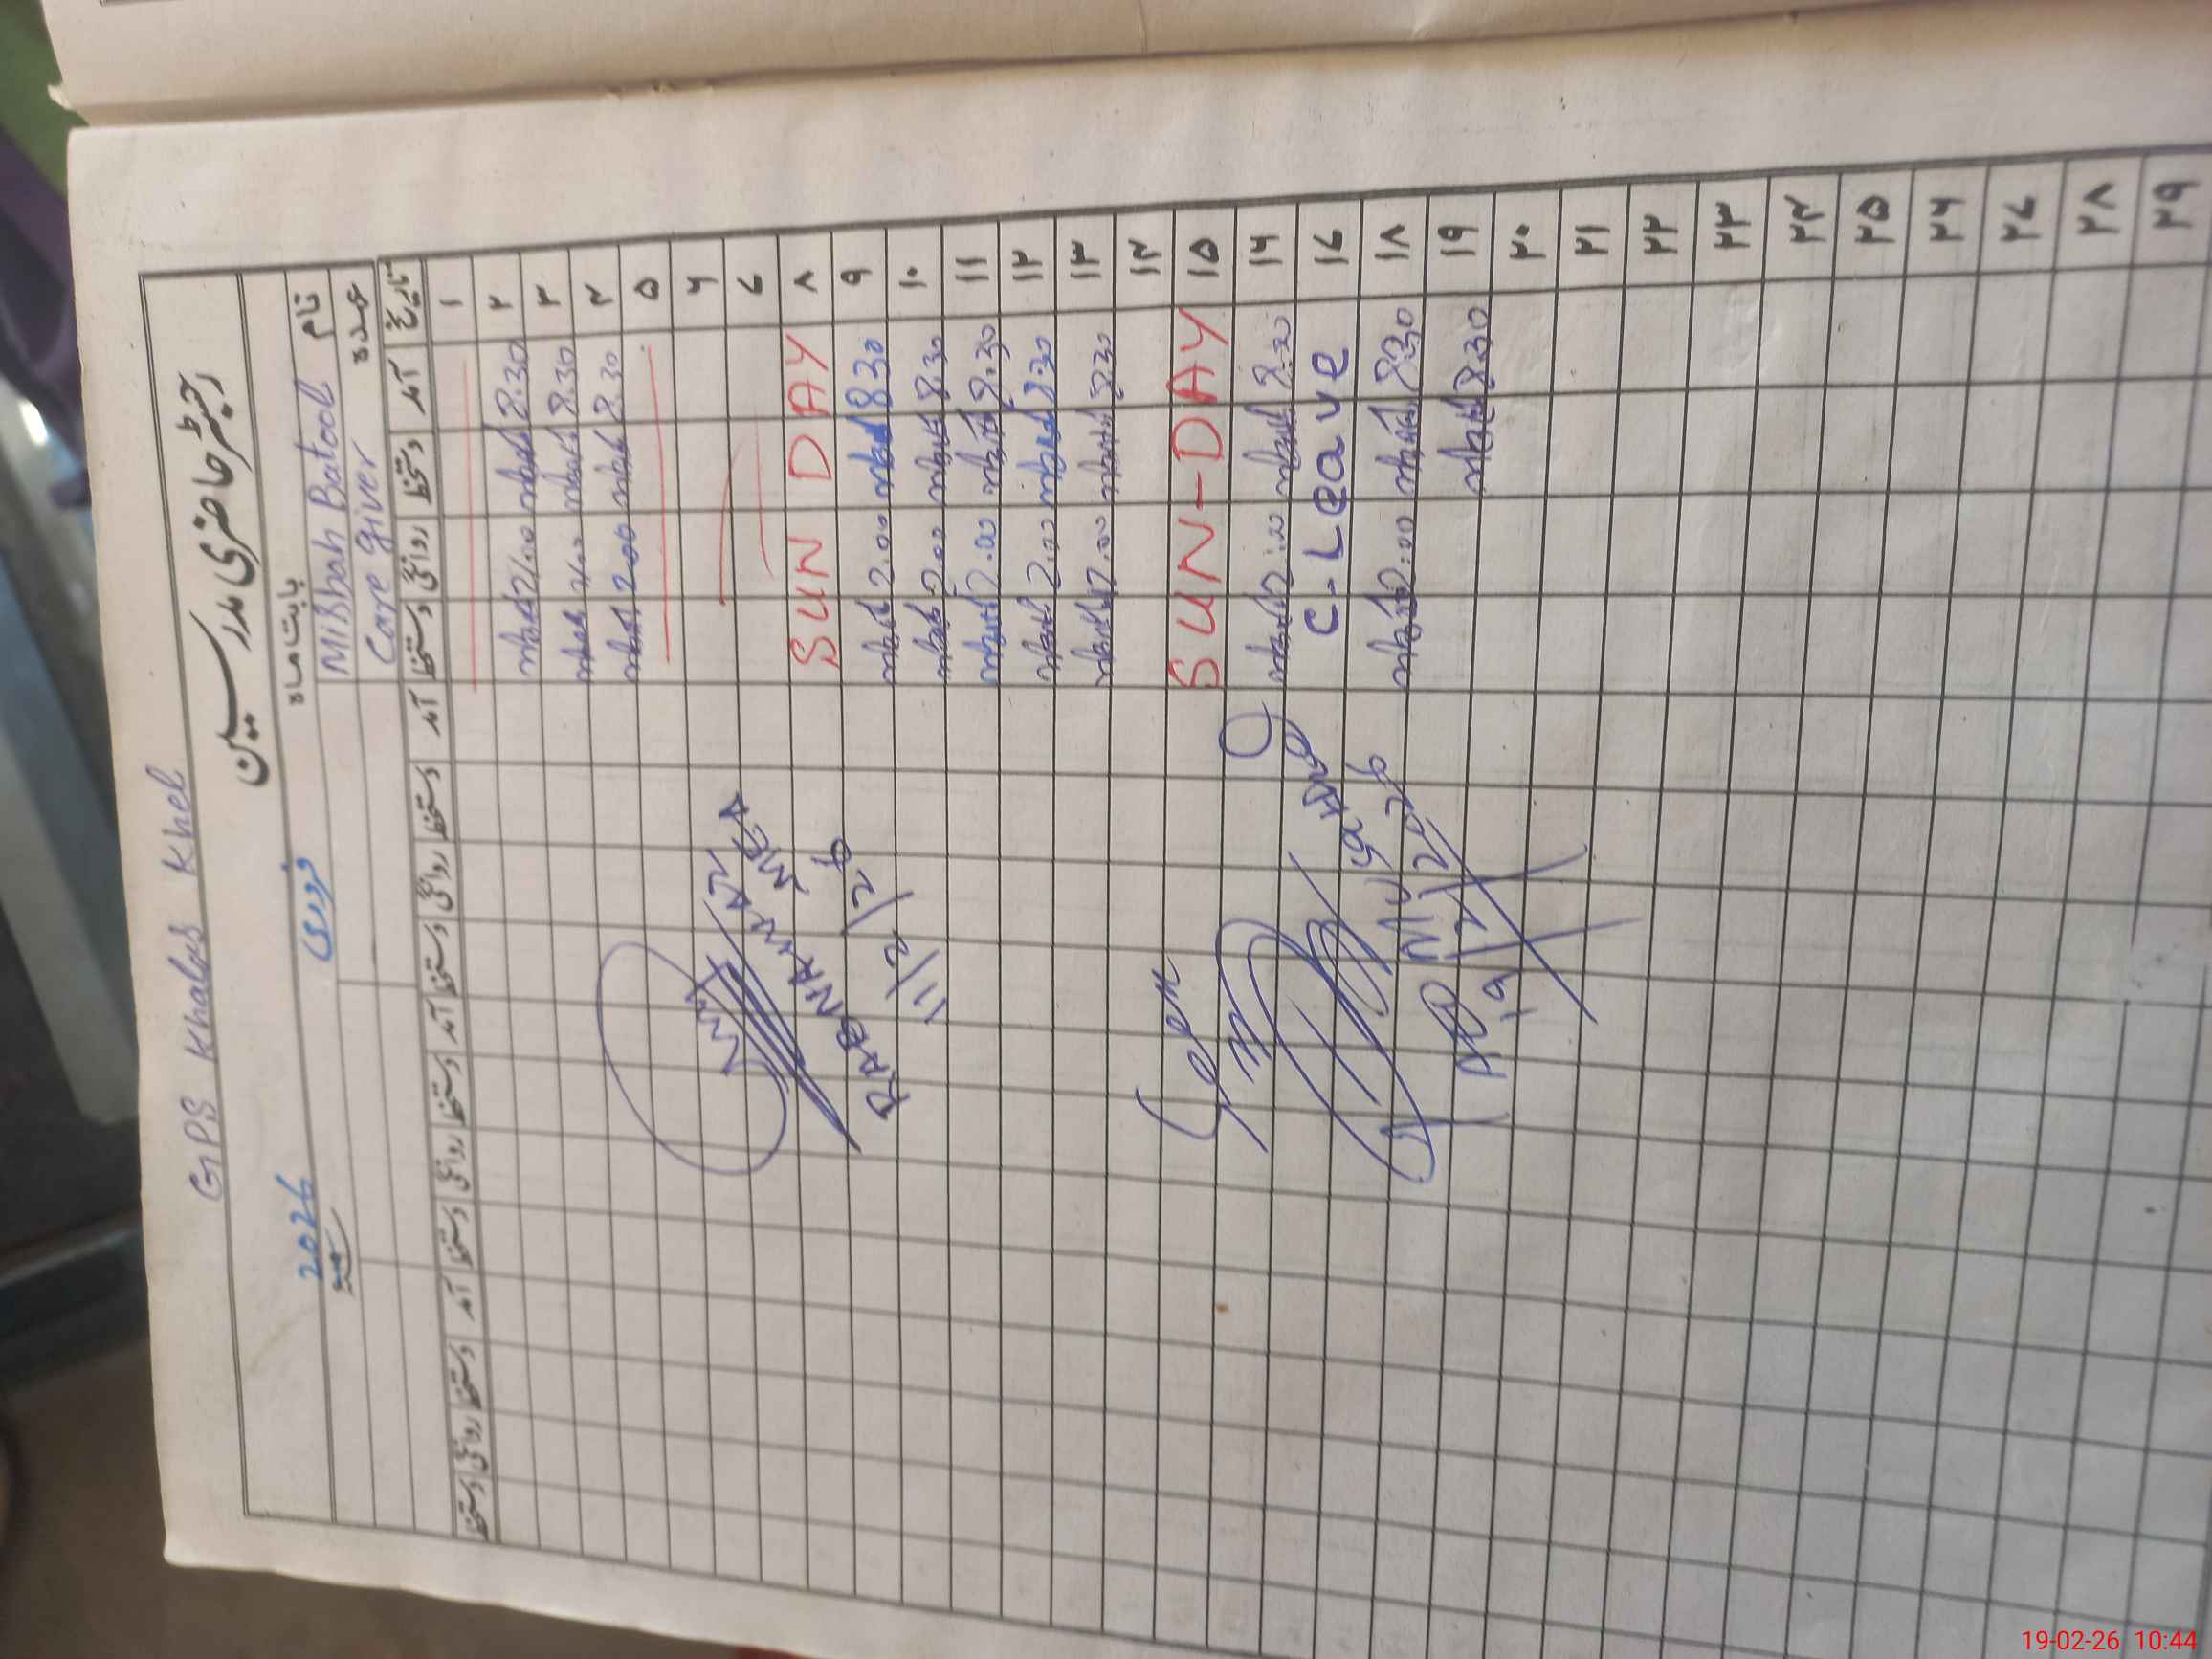 GPS Khalas Khel
رجسٹر حاضری مدرسین
بابت ماہ فروری 2026
نام Misbah Batool
عہدہ Care giver
تاریخ آمد دستخط روانگی دستخط آمد دستخط روانگی دستخط آمد دستخط روانگی دستخط آمد دستخط روانگی دستخط
۱
۲ 8.30 2.00
۳ 8.30 2.00
۴ 8.30 2.00
۵
۶
۷
۸ SUN DAY
۹ 8 30 2.00
۱۰ 8.30 2.00
۱۱ 8.30 2.00
۱۲ 8.30 2.00
۱۳ 8.30 2.00
۱۴
۱۵ SUN-DAY
۱۶ 8.30 2.00
۱۷ C.Leave
۱۸ 8.30 2.00
۱۹ 8.30
۲۰
۲۱
۲۲
۲۳
۲۴
۲۵
۲۶
۲۷
۲۸
۲۹
RABNAWAZ
MEA
11/2/26
Seen
19/2/2026
19-02-26 10:44